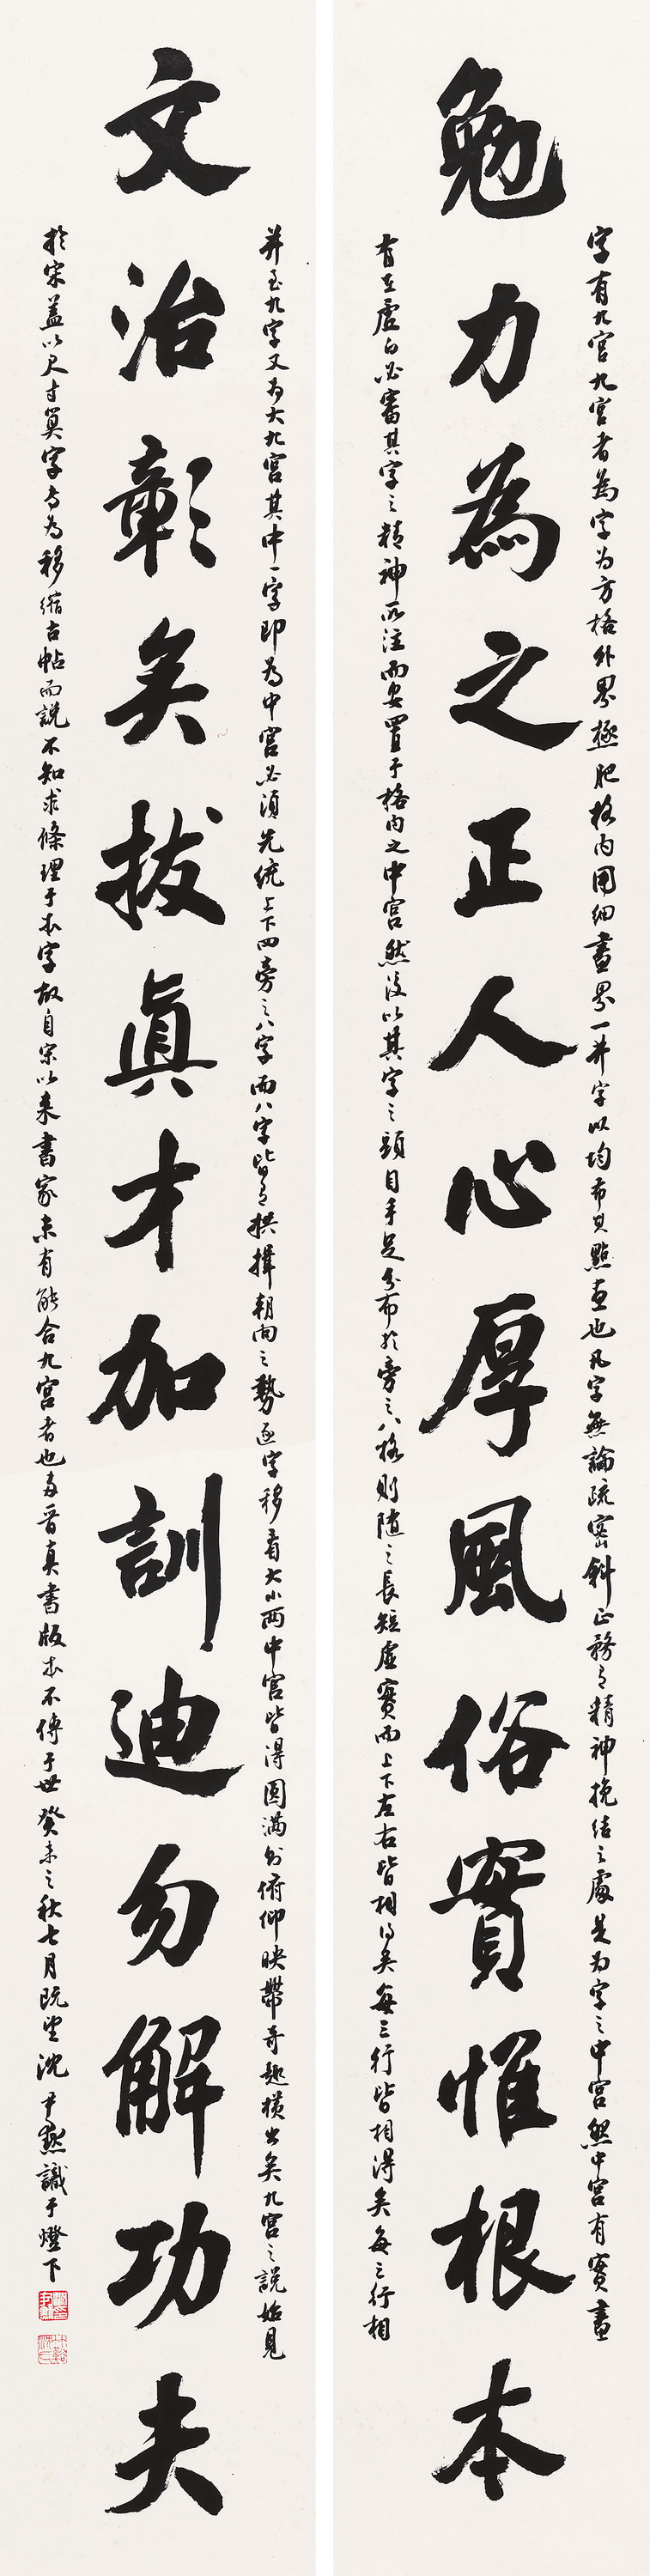 勉力為之正人心厚風俗實惟根本
字有九宮九宮者為字為方格外界極肥格內用細畫界一井字以均布其點畫也凡字無論疏密斜正務有精神挽結之處是為字之中宮然中宮有實畫
有在虛白必審其字之精神所注而安置于格內之中宮然後以其字之頭目手足分布於旁之八格則隨之長短虛實而上下左右皆相得矣每三行皆相得矣每三行相
文治彰矣拔真才加訓迪勿解功夫
并至九字又為大九宮其中一字即為中宮必須先統上下四旁之八字而八字皆有拱揖朝向之勢逐字移看大小兩中宮皆得圓滿則俯仰映帶奇趣橫出矣九宮之說始見
於宋蓋以尺寸算字專為移縮古帖而說不知求條理于本字故自宋以來書家未有能合九宮者也兩晉真書版本不傳于世癸未之秋七月既望沈尹默識于燈下